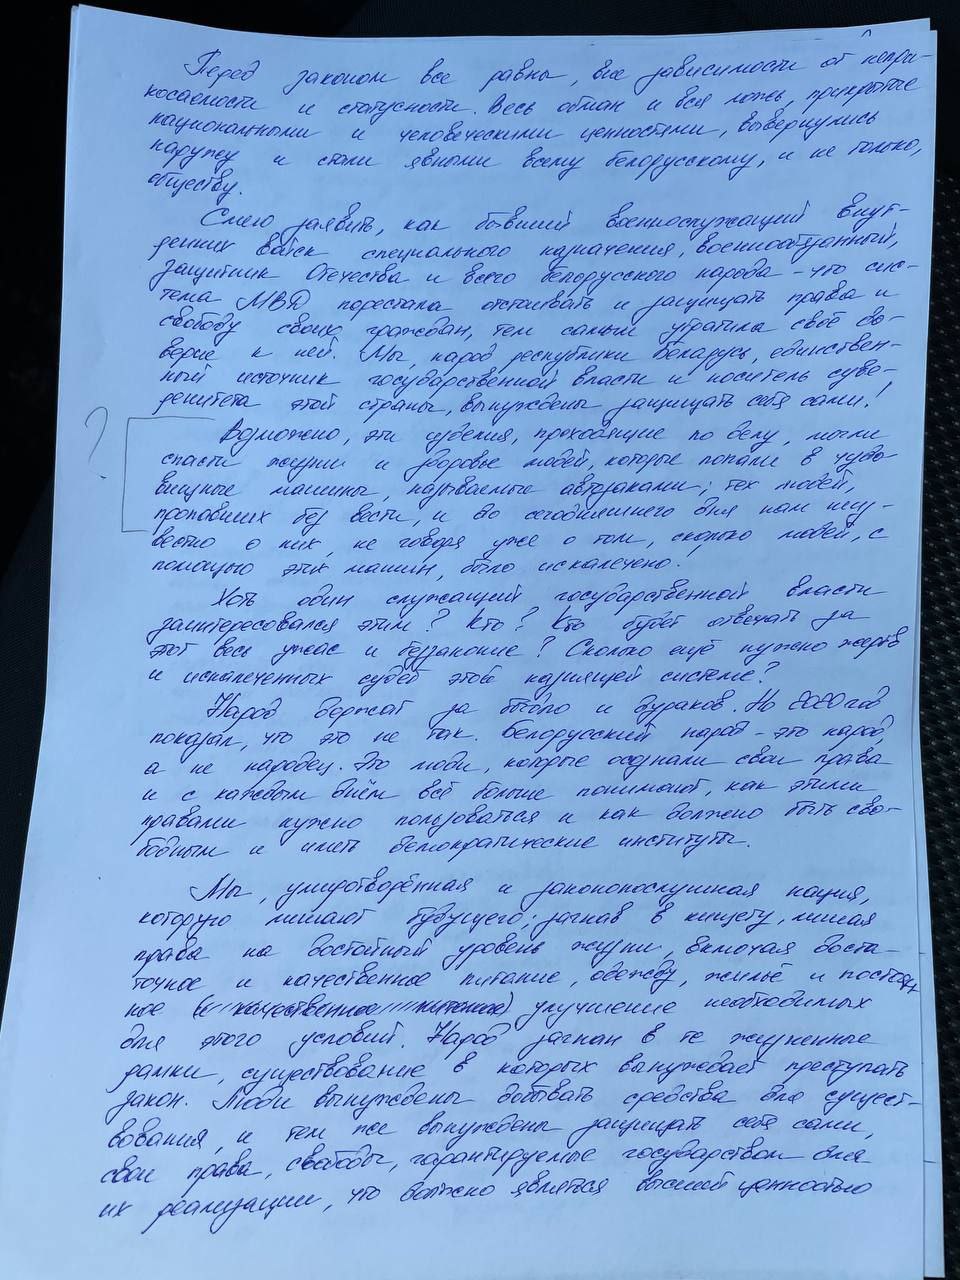 Перед законом все равны, вне зависимости от непри-
косаемости и статусности. Весь обман и вся ложь, прикрытые
национальными и человеческими ценностями, вывернулись
наружу и стали явными всему белорусскому, и не только,
обществу.
Смею заявить, как бывший военнослужащий внут-
ренних войск специального назначения, военнообязанный,
защитник Отечества и всего белорусского народа - что сис-
тема МВД перестала отстаивать и защищать права и
свободу своих граждан, тем самым утратила своё до-
верие к ней. Мы, народ республики Беларусь, единствен-
ный источник государственной власти и носитель суве-
ренитета этой страны, вынуждены защищать себя сами!
?
Возможно, эти изделия, проходящие по делу, могли
спасти жизни и здоровье людей, которые попали в чудо-
вищные машины, называемые автозаками; тех людей,
пропавших без вести, и до сегодняшнего дня нам неиз-
вестно о них, не говоря уже о том, сколько людей, с
помощью этих машин, было искалечено.
Хоть один служащий государственной власти
заинтересовался этим? Кто? Кто будет отвечать за
этот весь ужас и беззаконие? Сколько ещё нужно жертв
и искалеченных судеб этой карящей системе?
Народ держат за быдло и дураков. Но 2020 год
показал, что это не так. Белорусский народ - это народ,
а не народец. Это люди, которые осознали свои права
и с каждым днём всё больше понимают, как этими
правами нужно пользоваться и как должно быть сво-
бодным и иметь демократические институты.
Мы, умиротворённая и законопослушная нация,
которую лишают будущего; загнав в нищету, лишая
права на достойный уровень жизни, включая доста-
точное и качественное питание, одежду, жильё и постоян-
ное (и качественное питание) улучшение необходимых
для этого условий. Народ загнан в те жизненные
рамки, существование в которых вынуждает преступать
закон. Люди вынуждены добывать средства для сущест-
вования, и тем же вынуждены защищать себя сами,
свои права, свободы, гарантируемые государством для
их реализации, что должно являться высшей ценностью